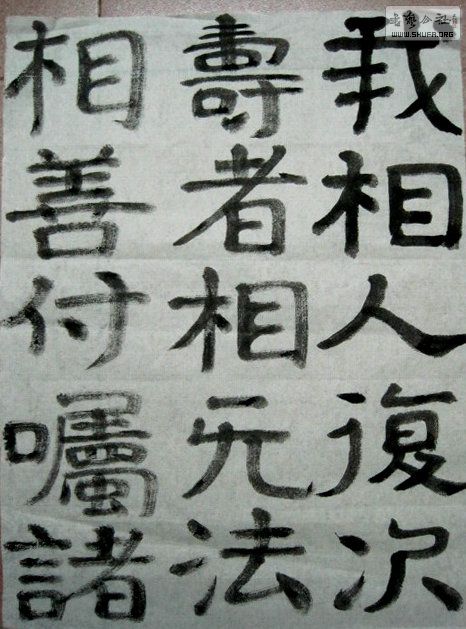 我相人復次
壽者相无法
相善付囑諸
書法公社
WWW.SHUFA.ORG